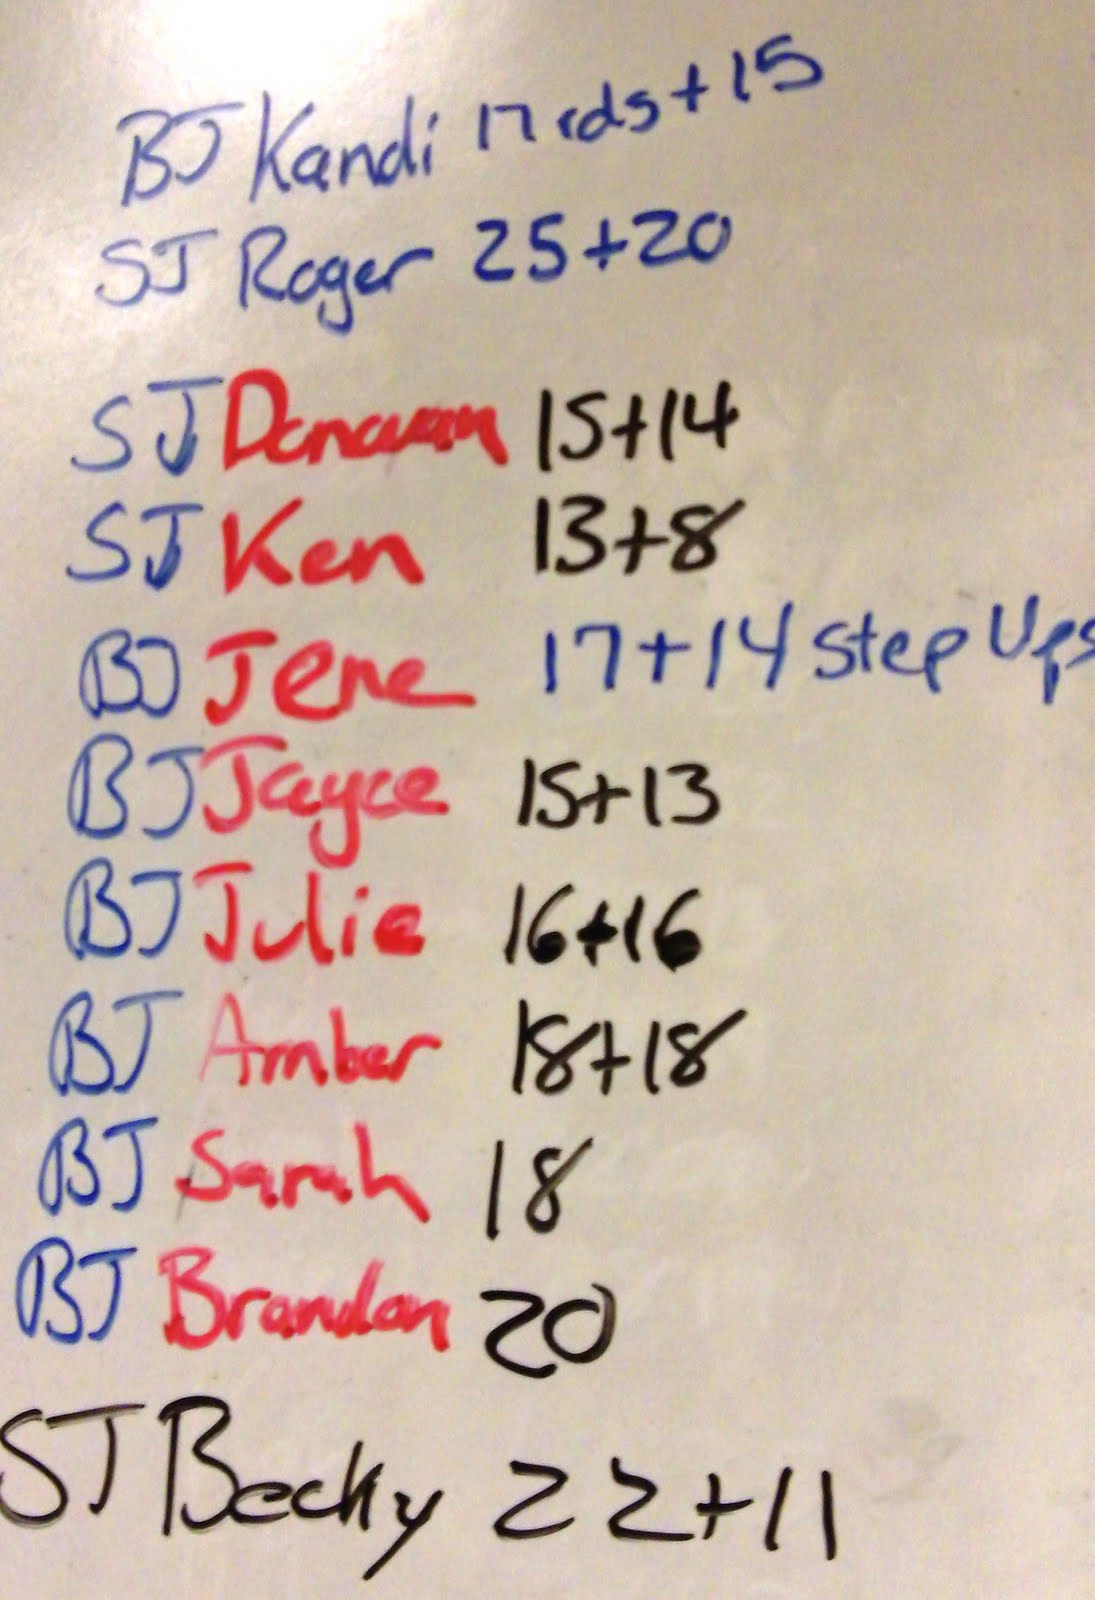 BJ Kandi 17 rds + 15
SJ Roger 25+20
SJ Donavan 15+14
SJ Ken 13+8
BJ Jene 17+14 step Ups
BJ Jayce 15+13
BJ Julie 16+16
BJ Amber 18+18
BJ Sarah 18
BJ Brandon 20
SJ Becky 22+11